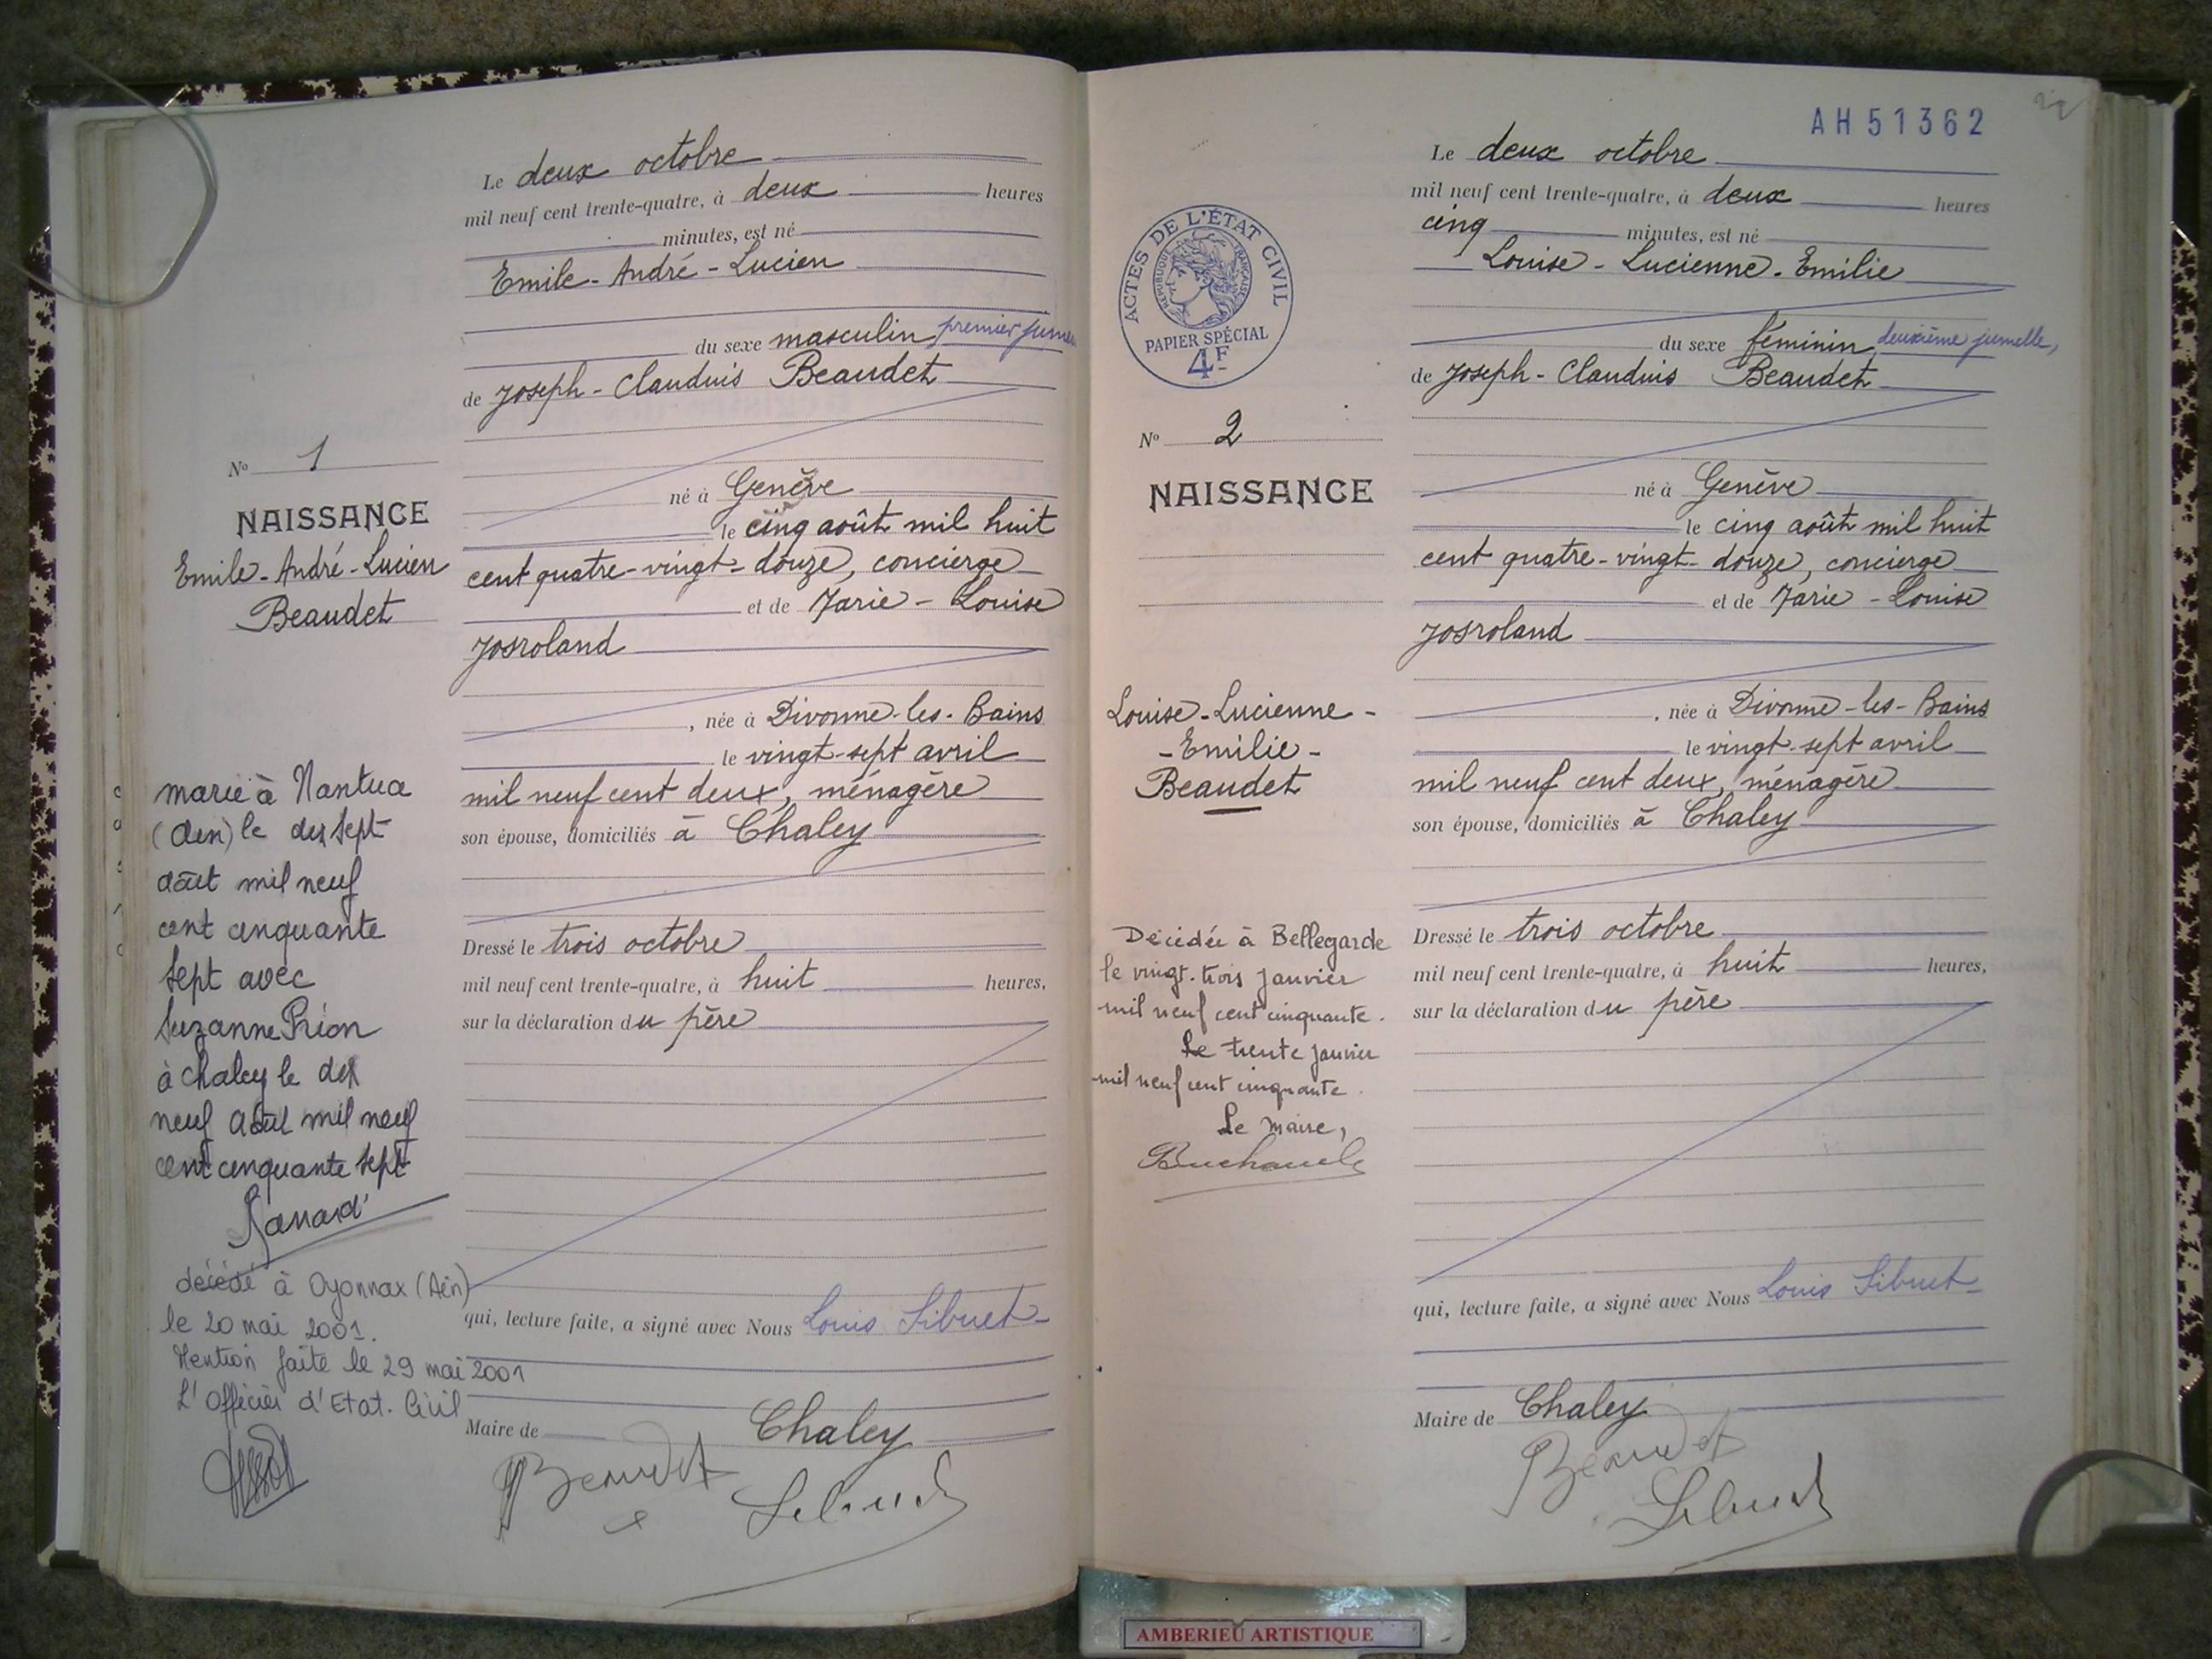 Le deux octobre
mil neuf cent trente-quatre, à deux heures
minutes, est né
Emile-André-Lucien
du sexe masculin, premier jumeau
de Joseph-Claudius Beaudet
né à Genève
le cinq août mil huit
cent quatre-vingt-douze, concierge
et de Marie-Louise
Josroland
, née à Divonne-les-Bains
le vingt-sept avril
mil neuf cent deux, ménagère
son épouse, domiciliés à Chaley
Dressé le trois octobre
mil neuf cent trente-quatre, à huit heures,
sur la déclaration du père
qui, lecture faite, a signé avec Nous Louis Sibuet
Maire de Chaley
Beaudet
Sibuet
No 1
NAISSANCE
Emile-André-Lucien
Beaudet
marié à Nantua
(Ain) le dix sept
août mil neuf
cent cinquante
sept avec
Suzanne Prion
à Chaley le dix
neuf août mil neuf
cent cinquante sept
décédé à Oyonnax (Ain)
le 20 mai 2001.
Mention faite le 29 mai 2001
L'Officier d'Etat-Civil
AH51362
Le deux octobre
mil neuf cent trente-quatre, à deux heures
cinq minutes, est né
Louise-Lucienne-Emilie
du sexe féminin, deuxième jumelle,
de Joseph-Claudius Beaudet
né à Genève
le cinq août mil huit
cent quatre-vingt-douze, concierge
et de Marie-Louise
Josroland
, née à Divonne-les-Bains
le vingt-sept avril
mil neuf cent deux, ménagère
son épouse, domiciliés à Chaley
Dressé le trois octobre
mil neuf cent trente-quatre, à huit heures,
sur la déclaration du père
qui, lecture faite, a signé avec Nous Louis Sibuet
Maire de Chaley
Beaudet
Sibuet
ACTES DE L'ÉTAT CIVIL
RÉPUBLIQUE FRANÇAISE
PAPIER SPÉCIAL
4F
No 2
NAISSANCE
Louise-Lucienne-
-Emilie-
Beaudet
Décédée à Bellegarde
le vingt-trois janvier
mil neuf cent cinquante.
Le trente janvier
mil neuf cent cinquante.
Le Maire,
AMBERIEU ARTISTIQUE